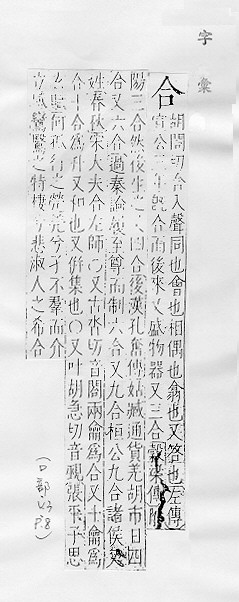 字彙
合
胡閤切合入聲同也會也相偶也翕也又答也左傳
宣公二年既合而後來又盛物器又三合穀梁傳陰
陽三合然後生之又四合後漢孔奮傳姑臧通貨羌胡市日四
合又六合過秦論履至尊而制六合又九合桓公九合諸侯又
姓春秋宋大夫合左師〇又古沓切音閤兩龠爲合又十龠爲
合十合爲升又和也又併集也〇又叶胡急切音覡張平子思
玄賦何孤行之煢煢兮孑不羣而介
立感鸞鷖之特棲兮悲淑人之希合
(口部 P.8)